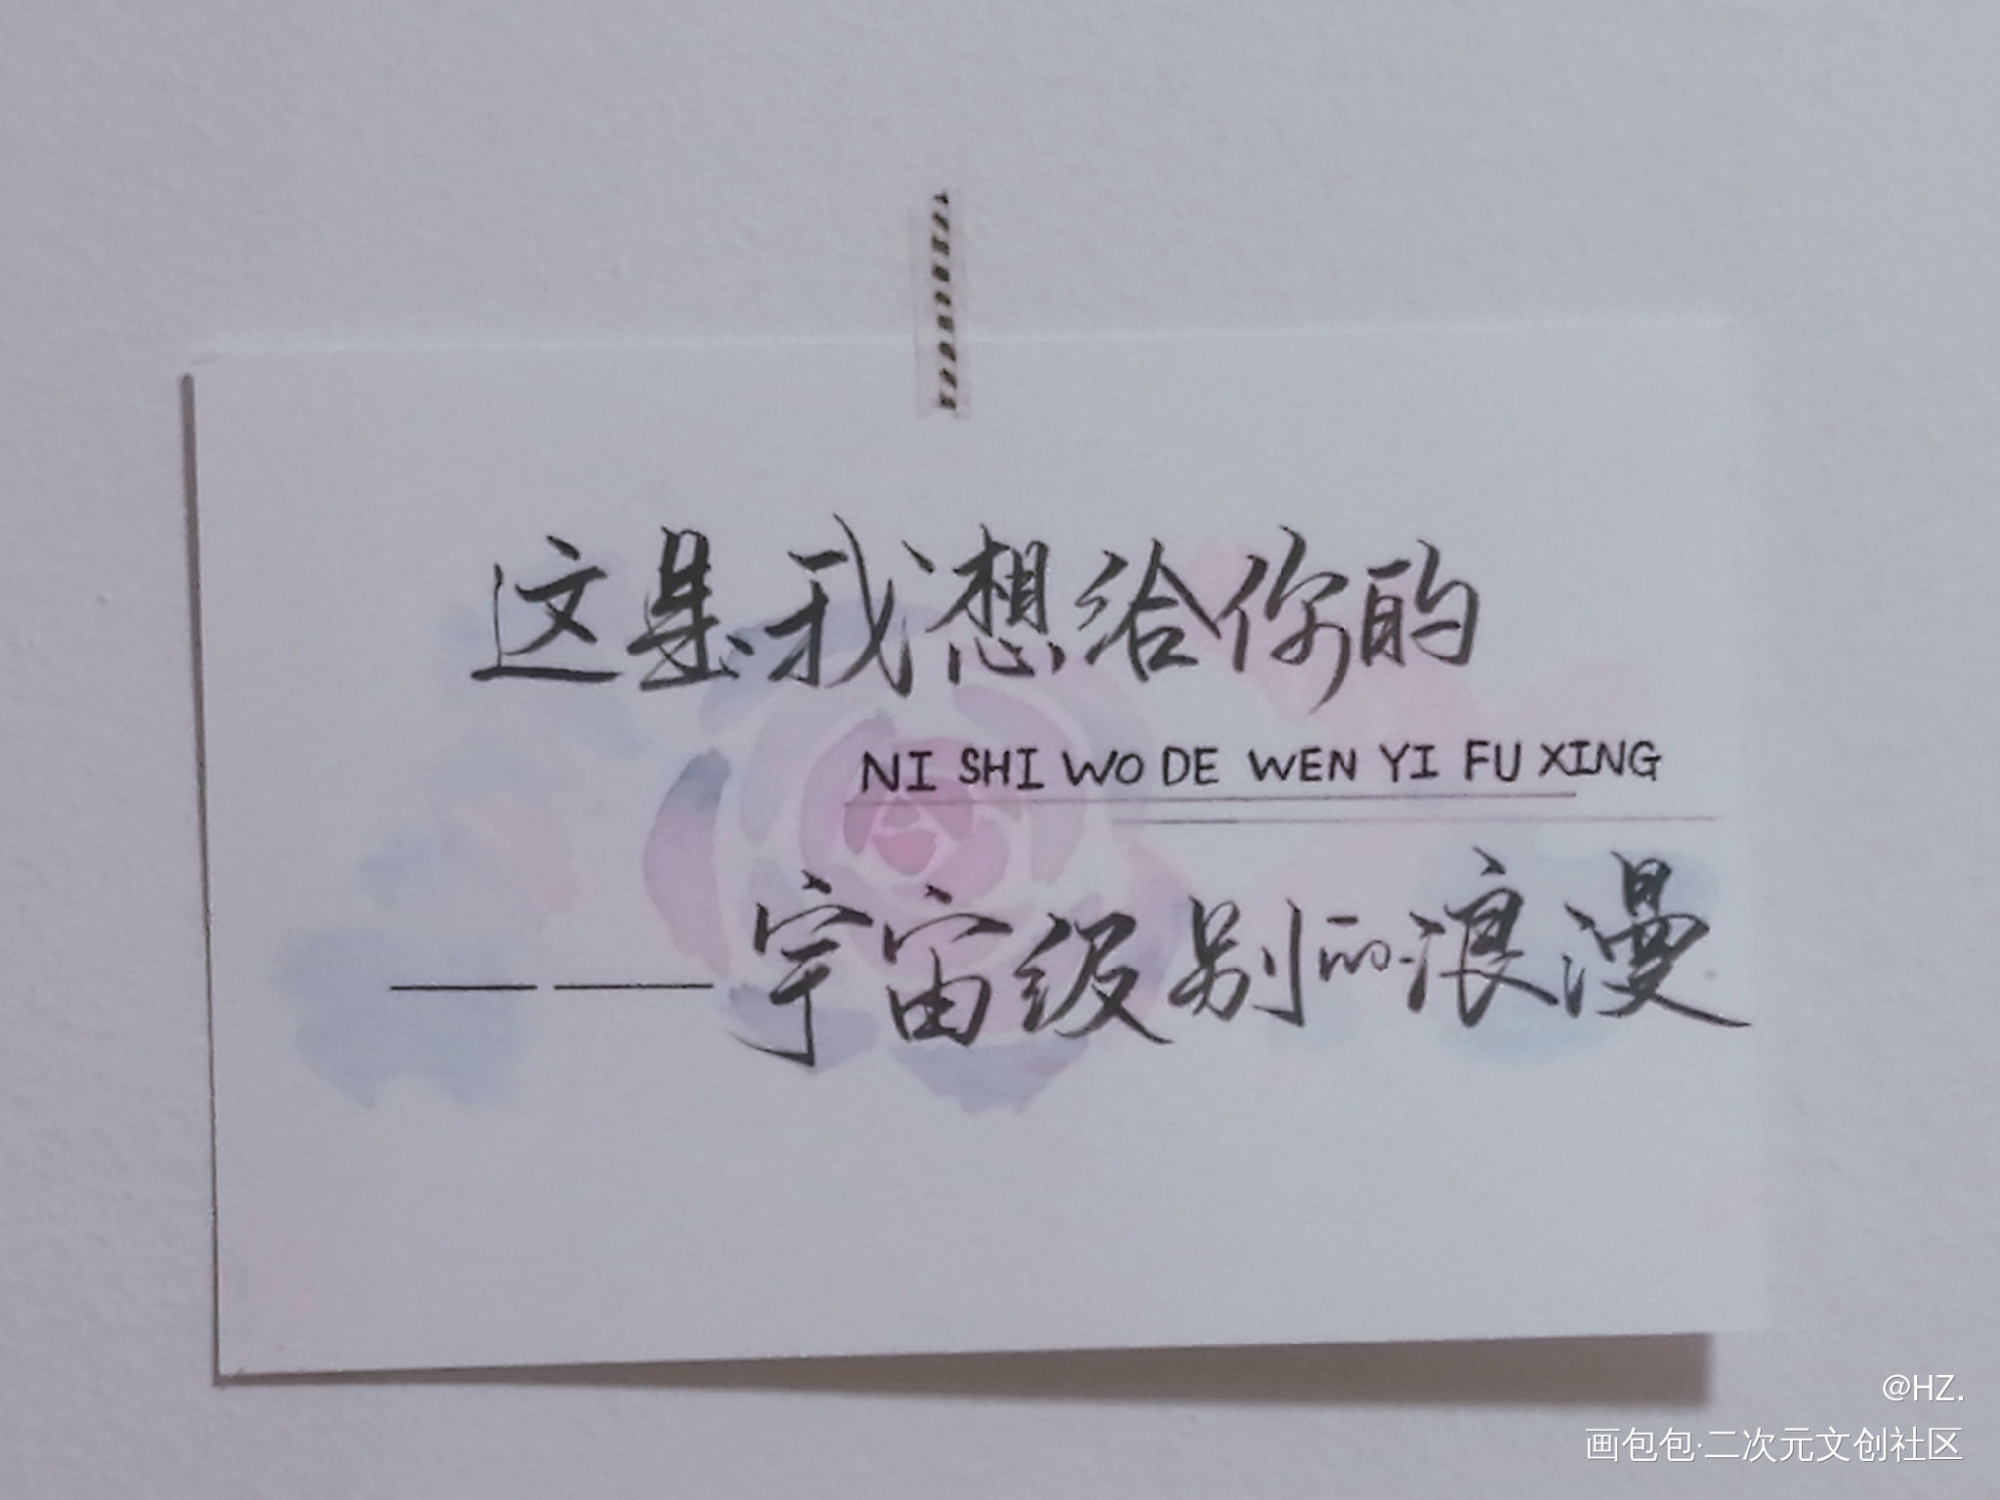 这是我想给你的
NI SHI WO DE WEN YI FU XING
——宇宙级别的浪漫
@HZ.
画包包·二次元文创社区